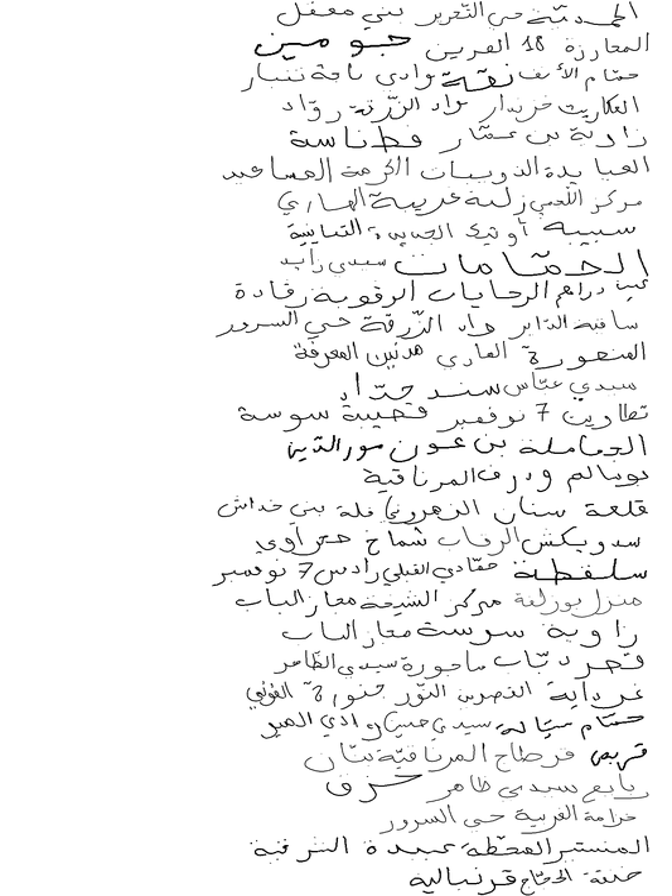 المحمديّة حي التّحرير بني معقل
المعارزة 18 العرين جبو مين
حمّام الأنف نقة وادي باجة ننبار
العكاريت خزندار واد الزّرقة روّاد
زاوية بن عمّار فطناسة
العبايدة الذويبات الكرمة المساعيد
مركز اللّجمي زلبة غريبة الهاري
سبيبة التبابنية
الحمّامات سيدي زايد
دراهم الرحايات الرقوبة رقادة
ساقية الدّاير واد الزّرقة حي السرور
المنصورة الهادي مدنين المعرفة
سيدي عبّاس سند حدّاد
تطاوين 7 نوفمبر قصيبة سوسة
الجماملة بن عون نور الدّين
بوسالم وذرف المرناقية
قلعة سنان الزهروني فلة بني خداش
سدويكش الرقاب شماخ حمراوي
سلقطة حفّادي القبلي رادس 7 نوفمبر
منزل بوزلفة مركز الشيخة مجاز الباب
زاوية سوسة مجاز الباب
قصر دبّاب ماجورة سيدي الظّاهر
غرداية القصرين النّور منّورة الفوني
حمّام سيّالة سيدي حسين وادي الصير
قربص قرطاج المرناقيّة بنّان
رابع سيدي طاهر حزق
خزامة الغربية حي السرور
المنستير المحطّة عبيدة الشرقية
خنقة الحجّاج قرنبالية